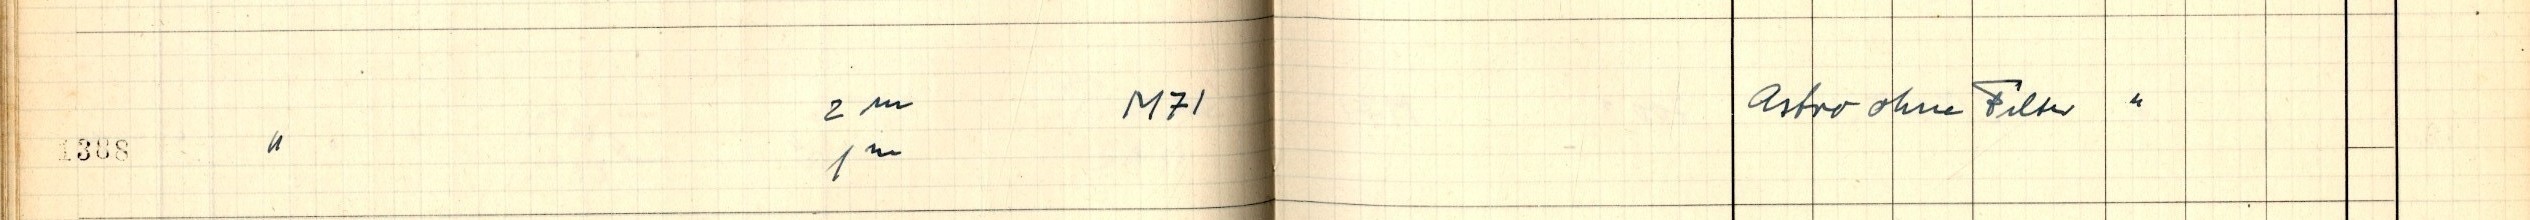 2 m M71 Astro ohne Filter "
1388 " 1 m